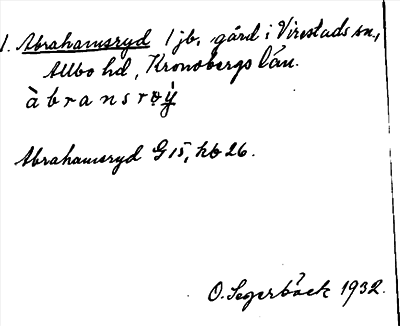 1. Abrahamsryd 1 jb, gård i Virestads sn,
Allbo hd, Kronobergs län.
à b r a n s r ø ỳ
Abrahamsryd G 15, kb 26.
O. Segerbäck 1932.